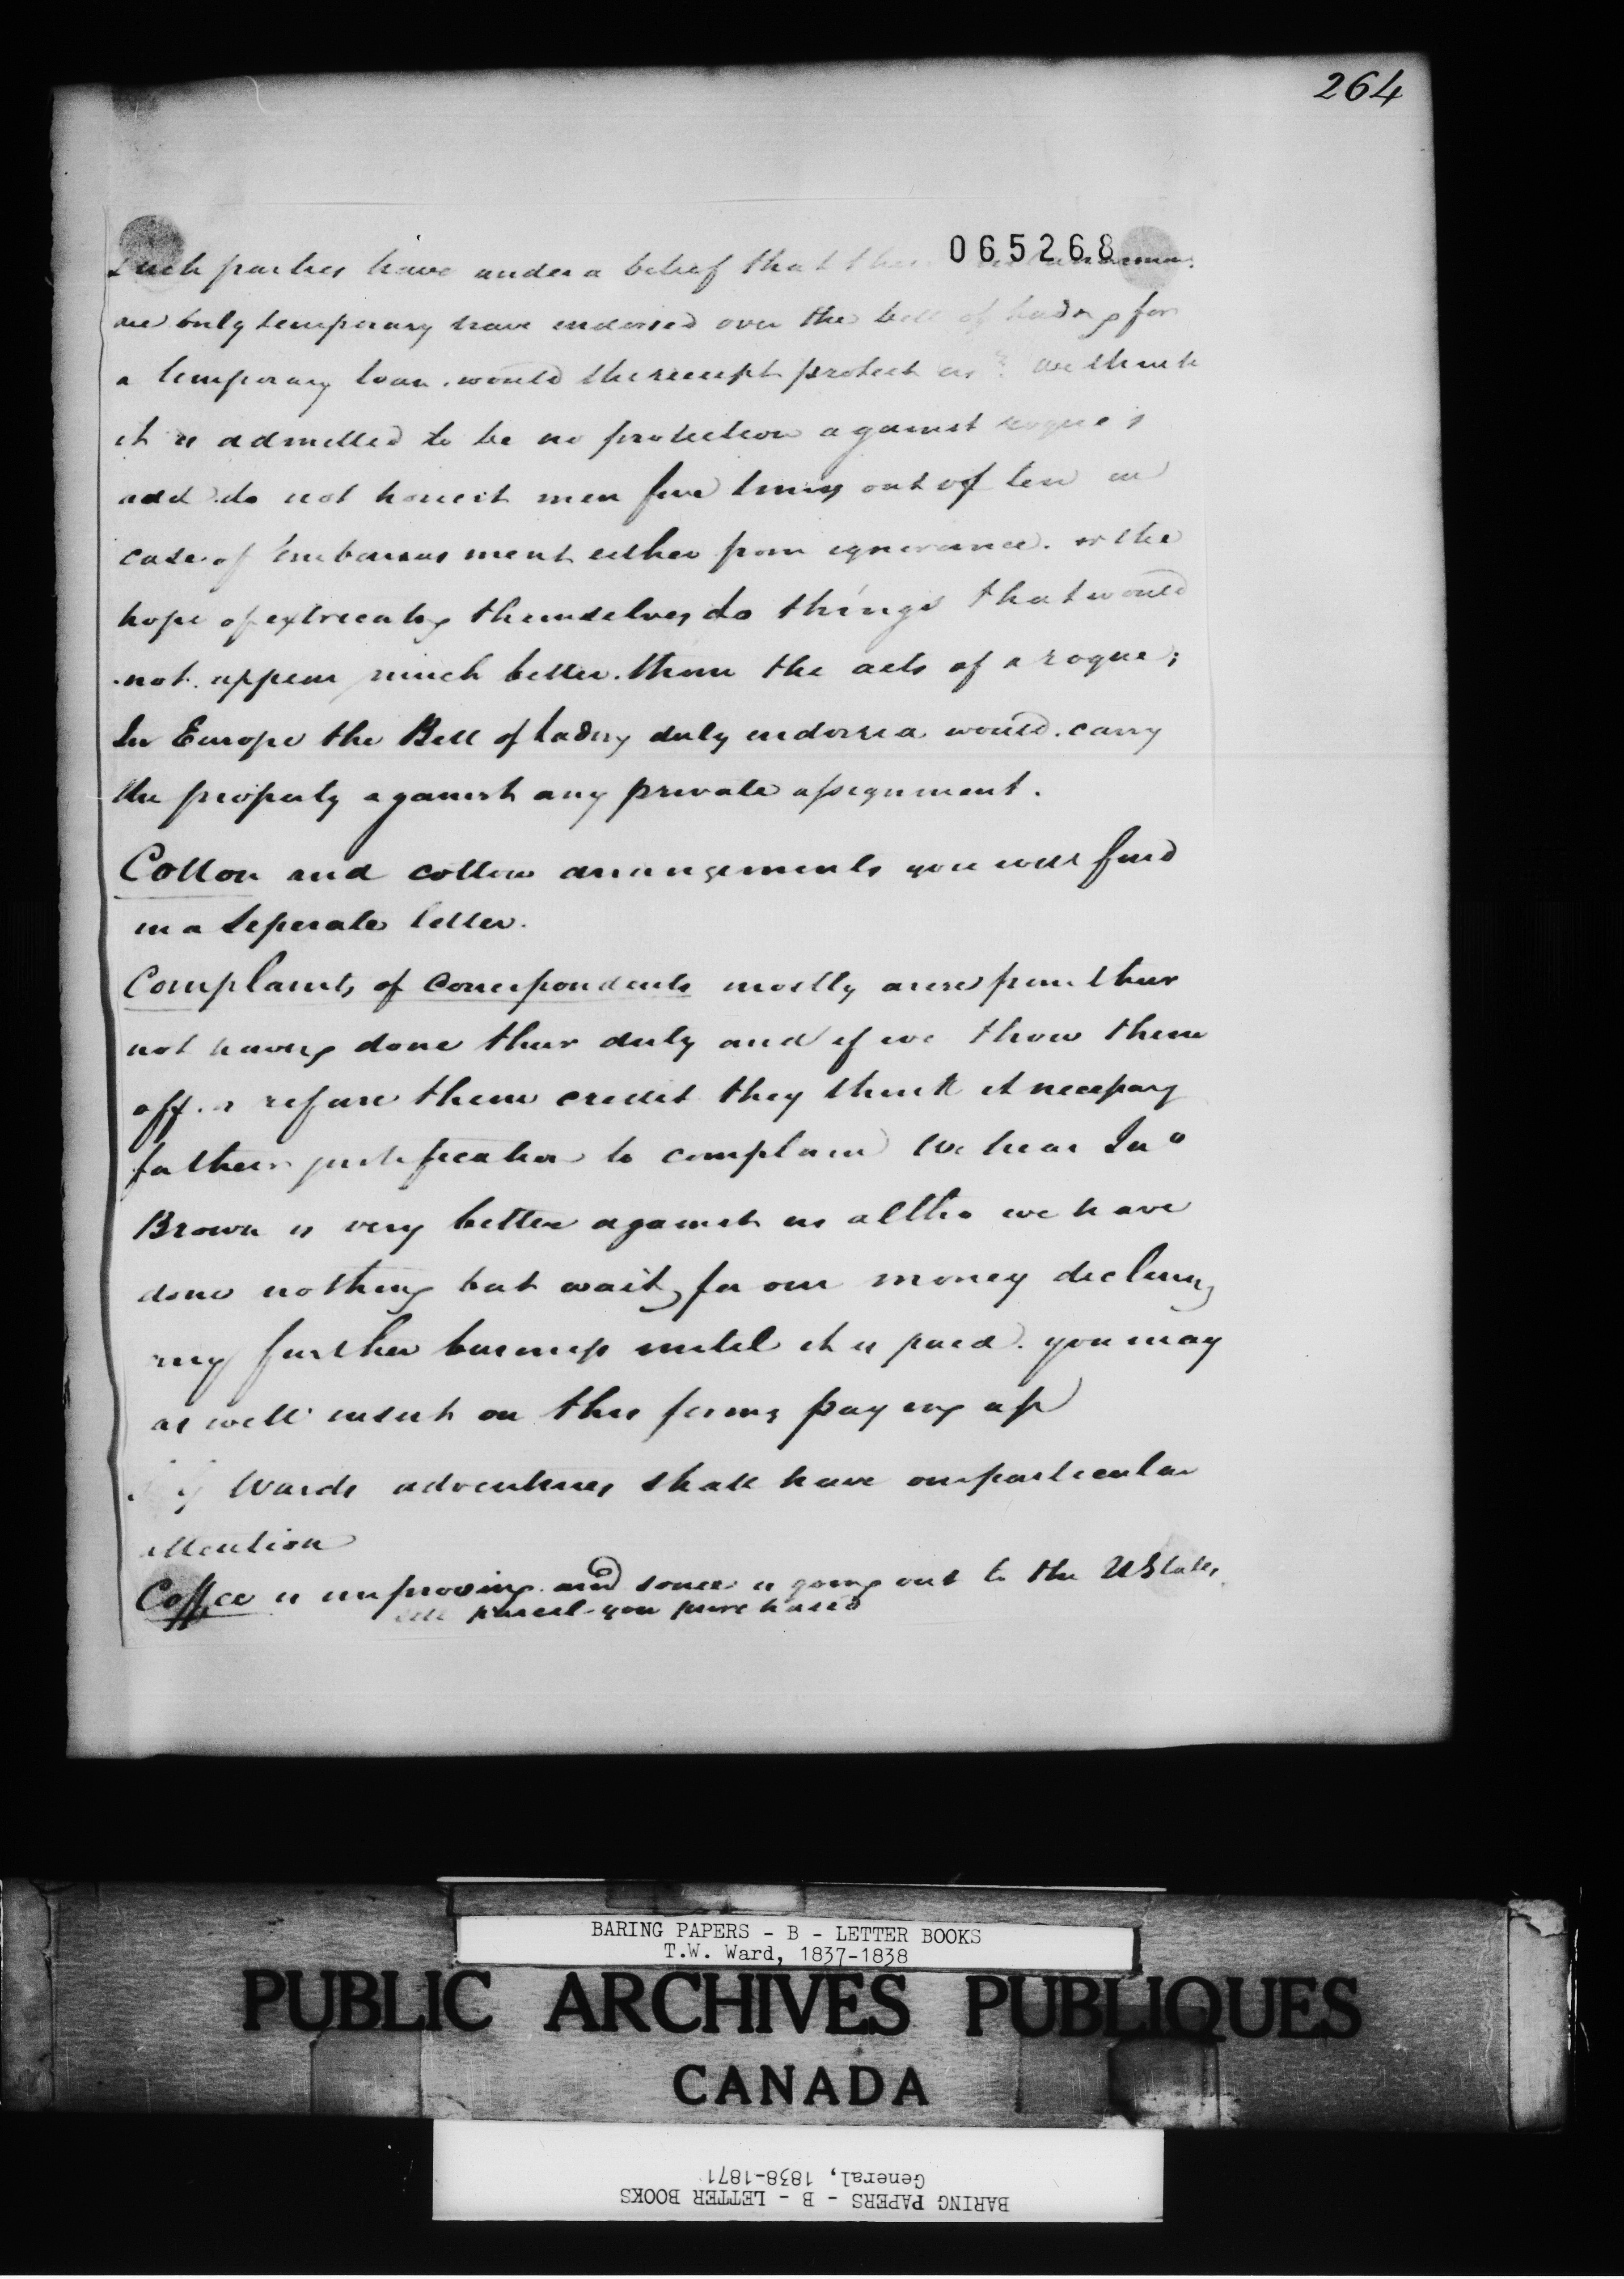 264
065268
Such parties have under a belief that their
are only temporary have endorsed over the bill of lading for
a temporary loan. would the receipt protect us? We think
it is admitted to be no protection against rogues
and do not honest men five times out of ten in
case of embarrassment either from ignorance. or the
hope of extricating themselves do things that would
not appear much better than the acts of a rogue;
In Europe the Bill of lading duly endorsed would carry
the property against any private assignment.
Cotton and cotton arrangements you will find
in a seperate letter.
Complaints of Correspondents mostly arise from their
not having done their duty and if we throw them
off or refuse them credit they think it necessary
for their justification to complain We hear Jno
Brown is very bitter against us altho we have
done nothing but wait for our money declining
any further business until it is paid. you may
as well insist on this firms paying up
Wards adventures shall have our particular
attention
Coffee is improving and some is going out to the UStates
parcel you purchased
BARING PAPERS - B - LETTER BOOKS
T.W. Ward, 1837-1838
PUBLIC ARCHIVES PUBLIQUES
CANADA
BARING PAPERS - B - LETTER BOOKS
General, 1838-1871